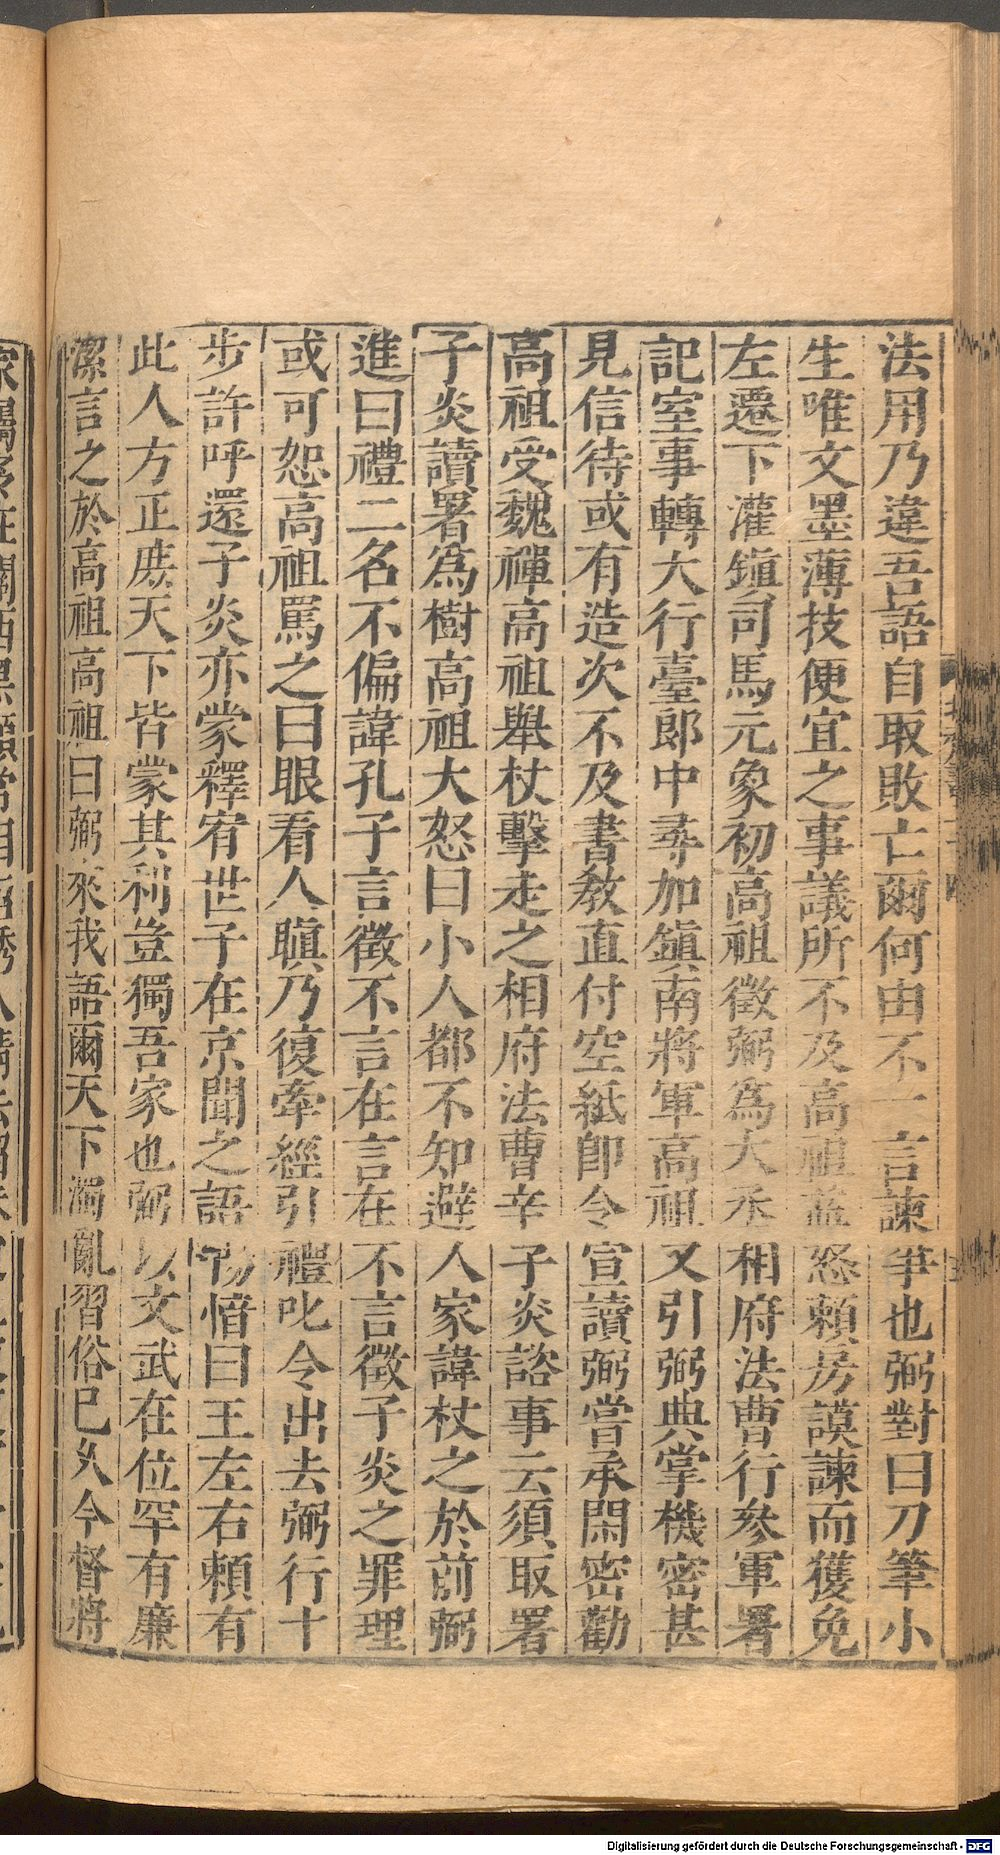 法用乃違吾語自取敗亡爾何由不一言諫争也弼對曰刀筆小
生唯文墨薄技便宜之事議所不及高祖益怒賴房謨諫而獲免
左遷下灌鎮司馬元象初高祖徵弼為大丞相府法曹行叅軍署
記室事轉大行臺郎中尋加鎮南將軍高祖又引弼典掌機密甚
見信待或有造次不及書教直付空紙即令宣讀弼嘗承閒密勸
高祖受魏禪高祖舉杖擊走之相府法曹辛子炎諮事云須取署
子炎讀署為樹高祖大怒曰小人都不知避人家諱杖之於前弼
進曰禮二名不偏諱孔子言徵不言在言在不言徵子炎之罪理
或可恕高祖罵之曰眼看人瞋乃復牽經引禮叱令出去弼行十
步許呼還子炎亦蒙釋宥世子在京聞之語楊愔曰王左右賴有
此人方正庶天下皆蒙其利豈獨吾家也弼以文武在位罕有廉
潔言之於高祖高祖曰弼來我語爾天下濁亂習俗已久今督將
Digitalisierung gefördert durch die Deutsche Forschungsgemeinschaft - DFG